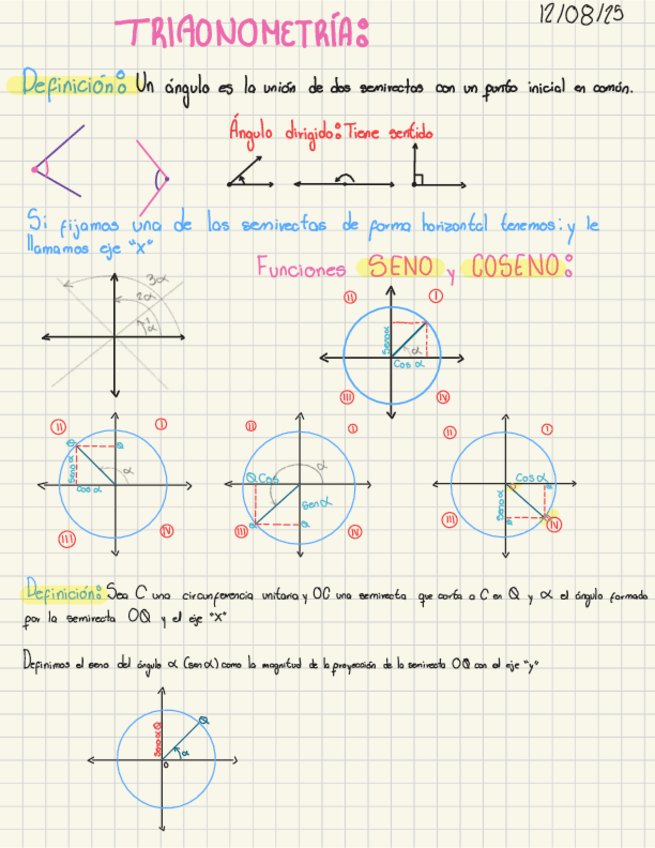 12/08/25
TRIGONOMETRÍA:
Definición: Un ángulo es la unión de dos semirectas con un punto inicial en común.
Ángulo dirigido: Tiene sentido
Si fijamos una de las semirectas de forma horizontal tenemos: y le
llamamos eje "x"
Funciones SENO y COSENO:
3α
2α
1α
II I
Seno α
α
Cos α
III IV
II I
Q
Seno α
α
Cos α
III IV
II I
α
Q Cos
sen α
III IV
II I
Cos α
Seno α
III IV
Definición: Sea C una circunferencia unitaria y OC una semirecta que corta a C en Q y α el ángulo formado
por la semirecta OQ y el eje "x"
Definimos el seno del ángulo α (sen α) como la magnitud de la proyección de la semirecta OQ con el eje "y"
Q
Seno α Q
α
O